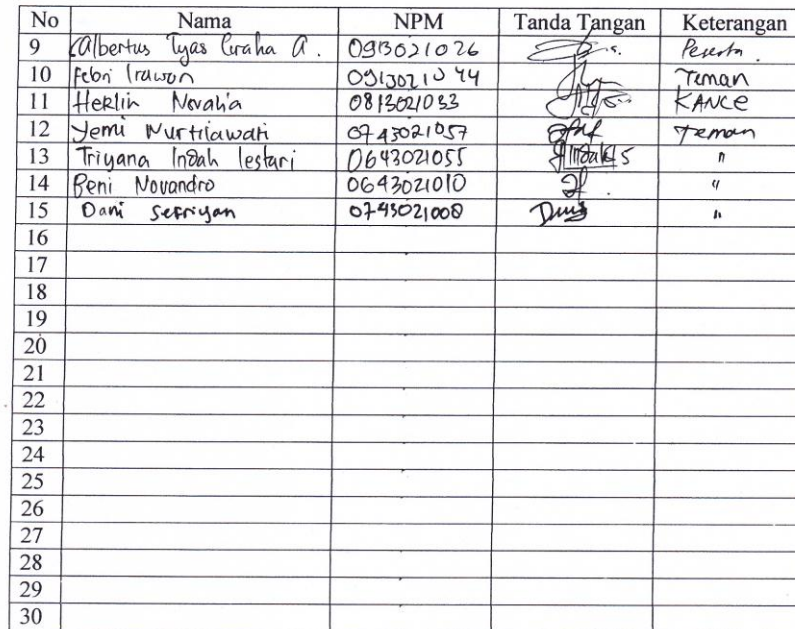 No Nama NPM Tanda Tangan Keterangan
9 Albertus Tyas Graha A. 0913021026 Peserta
10 Febri Irawan 0913021044 Teman
11 Herlin Novalia 0813021033 KANCE
12 Yemi Nurtilawati 0743021057 Teman
13 Triyana Indah lestari 0643021055 Indah LS "
14 Beni Novandro 0643021010 "
15 Dani Sefriyan 0743021008 "
16
17
18
19
20
21
22
23
24
25
26
27
28
29
30